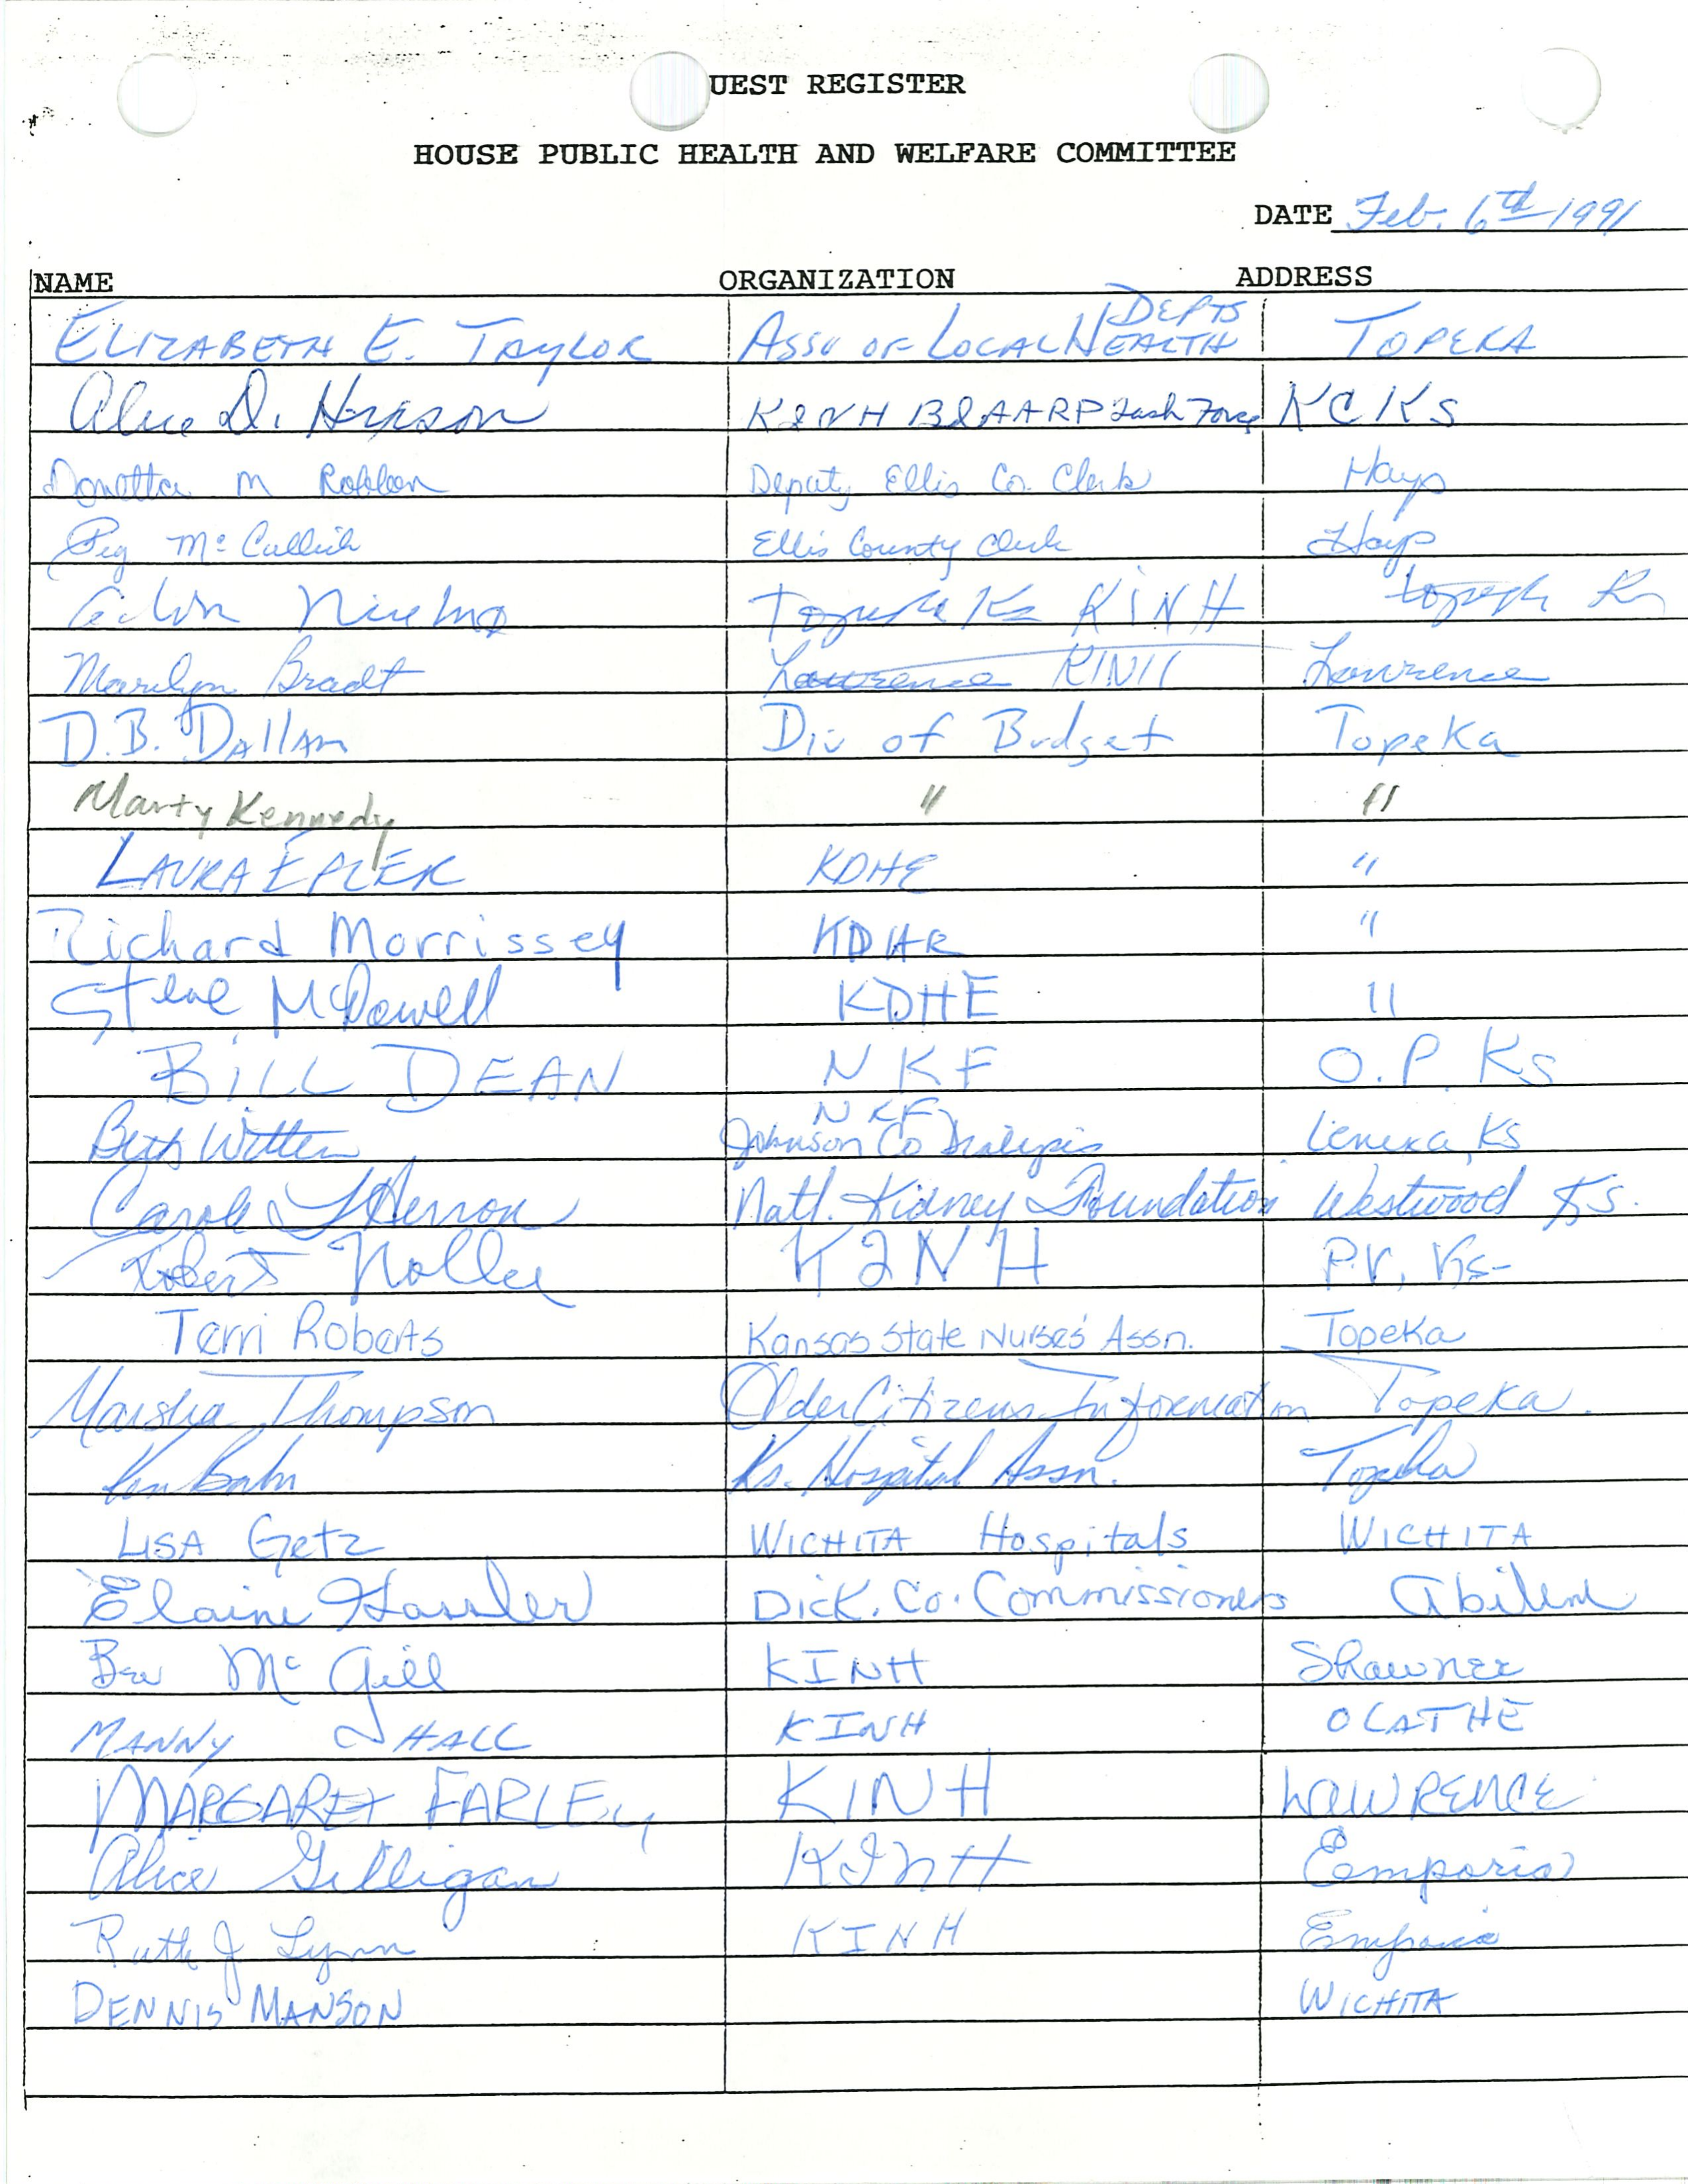 UEST REGISTER
HOUSE PUBLIC HEALTH AND WELFARE COMMITTEE
DATE Feb. 6th 1991
NAME ORGANIZATION ADDRESS
ELIZABETH E. TAYLOR ASSN OF LOCAL HEALTH DEPTS TOPEKA
Alice D. KINH AARP Task Force KCKS
M Deputy Ellis Co. Clerk Hays
Peg Ellis County Clerk Hays
Topeka Ks KINH Topeka Ks
Marilyn Bradt Lawrence KINH Lawrence
D.B. Dallam Div of Budget Topeka
Marty Kennedy " "
LAURA EPLER KDHE "
Richard Morrissey KDHE "
Steve McDowell KDHE "
BILL DEAN NKF O.P. Ks
Beth Witten NKF Johnson Co Dialysis Lenexa, KS
Carole Herron Natl. Kidney Foundation Westwood Ks.
Robert KINH P.V. Ks-
Terri Roberts Kansas State Nurses' Assn. Topeka
Marsha Thompson Older Citizens Information Topeka.
Ks. Hospital Assn. Topeka
LISA Getz WICHITA Hospitals WICHITA
Elaine Hassler Dick. Co. Commissioners Abilene
Bev McGill KINH Shawnee
MANNY HALL KINH OLATHE
MARGARET FARLEY KINH LAWRENCE
Alice Gilligan KINH Eemporia
Ruth J Lynn KINH Emporia
DENNIS MANSON WICHITA